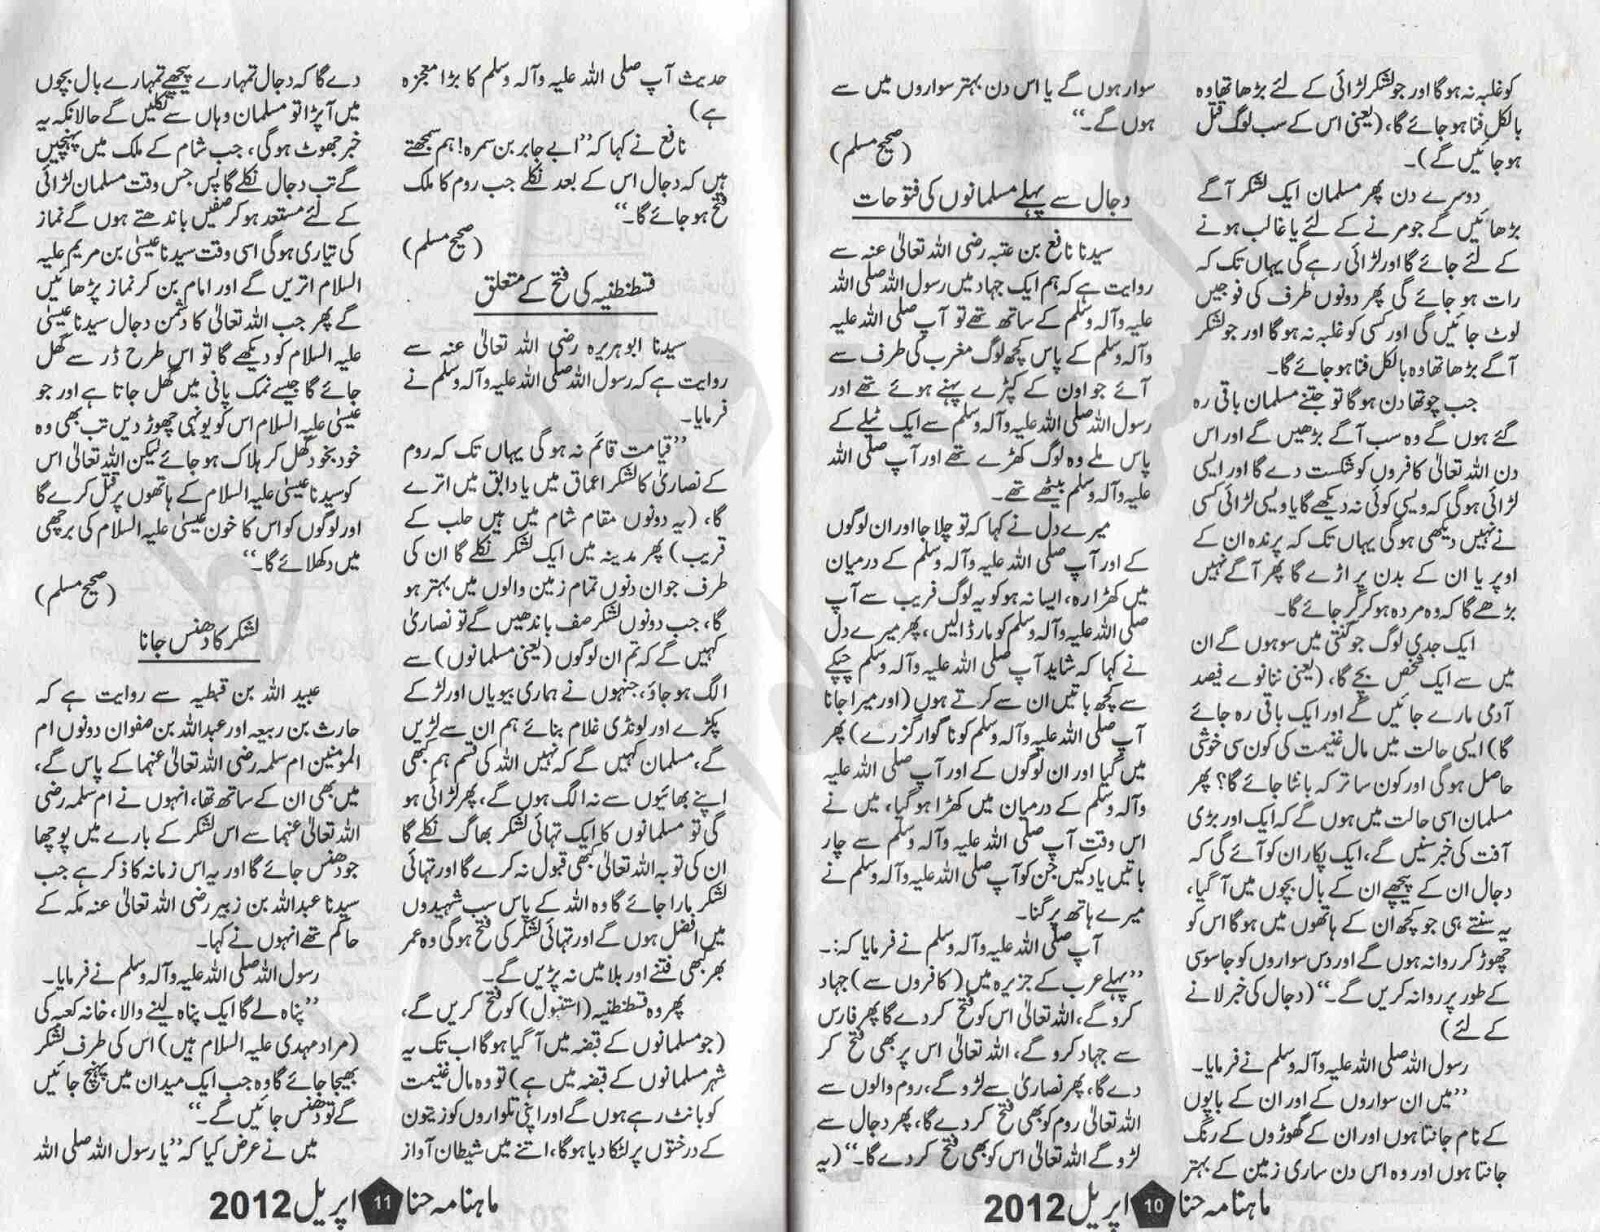 کو غلبہ نہ ہوگا اور جو لشکر لڑائی کے لئے بڑھا تھا وہ
بالکل فنا ہو جائے گا، (یعنی اس کے سب لوگ قتل
ہو جائیں گے)۔
دوسرے دن پھر مسلمان ایک لشکر آگے
بڑھائیں گے جو مرنے کے لئے یا غالب ہونے
کے لئے جائے گا اور لڑائی رہے گی یہاں تک کہ
رات ہو جائے گی پھر دونوں طرف کی فوجیں
لوٹ جائیں گی اور کسی کو غلبہ نہ ہوگا اور جو لشکر
آگے بڑھا تھا وہ بالکل فنا ہو جائے گا۔
جب چوتھا دن ہوگا تو جتنے مسلمان باقی رہ
گئے ہوں گے وہ سب آگے بڑھیں گے اور اس
دن اللہ تعالیٰ کافروں کو شکست دے گا اور ایسی
لڑائی ہوگی کہ ویسی کوئی نہ دیکھے گا یا ویسی لڑائی کسی
نے نہیں دیکھی ہوگی یہاں تک کہ پرندہ ان کے
اوپر یا ان کے بدن پر اڑے گا پھر آگے نہیں
بڑھے گا کہ وہ مردہ ہو کر گر جائے گا۔
ایک جدی لوگ جو گنتی میں سو ہوں گے ان
میں سے ایک شخص بچے گا، (یعنی ننانوے فیصد
آدمی مارے جائیں گے اور ایک باقی رہ جائے
گا) ایسی حالت میں مال غنیمت کی کون سی خوشی
حاصل ہوگی اور کون سا ترکہ بانٹا جائے گا؟ پھر
مسلمان اسی حالت میں ہوں گے کہ ایک اور بڑی
آفت کی خبر سنیں گے، ایک پکار ان کو آئے گی کہ
دجال ان کے پیچھے ان کے بال بچوں میں آ گیا،
یہ سنتے ہی جو کچھ ان کے ہاتھوں میں ہوگا اس کو
چھوڑ کر روانہ ہوں گے اور دس سواروں کو جاسوسی
کے طور پر روانہ کریں گے۔“ (دجال کی خبر لانے
کے لئے)
رسول اللہ صلی اللہ علیہ وآلہ وسلم نے فرمایا۔
”میں ان سواروں کے اور ان کے باپوں
کے نام جانتا ہوں اور ان کے گھوڑوں کے رنگ
جانتا ہوں اور وہ اس دن ساری زمین کے بہتر
سوار ہوں گے یا اس دن بہتر سواروں میں سے
ہوں گے۔“
(صحیح مسلم)
دجال سے پہلے مسلمانوں کی فتوحات
سیدنا نافع بن عتبہ رضی اللہ تعالیٰ عنہ سے
روایت ہے کہ ہم ایک جہاد میں رسول اللہ صلی اللہ
علیہ وآلہ وسلم کے ساتھ تھے تو آپ صلی اللہ علیہ
وآلہ وسلم کے پاس کچھ لوگ مغرب کی طرف سے
آئے جو اون کے کپڑے پہنے ہوئے تھے اور
رسول اللہ صلی اللہ علیہ وآلہ وسلم سے ایک ٹیلے کے
پاس ملے وہ لوگ کھڑے تھے اور آپ صلی اللہ
علیہ وآلہ وسلم بیٹھے تھے۔
میرے دل نے کہا کہ تو چلا جا اور ان لوگوں
کے اور آپ صلی اللہ علیہ وآلہ وسلم کے درمیان
میں کھڑا رہ، ایسا نہ ہو کہ یہ لوگ فریب سے آپ
صلی اللہ علیہ وآلہ وسلم کو مار ڈالیں، پھر میرے دل
نے کہا کہ شاید آپ صلی اللہ علیہ وآلہ وسلم چپکے
سے کچھ باتیں ان سے کرتے ہوں (اور میرا جانا
آپ صلی اللہ علیہ وآلہ وسلم کو ناگوار گزرے) پھر
میں گیا اور ان لوگوں کے اور آپ صلی اللہ علیہ
وآلہ وسلم کے درمیان میں کھڑا ہو گیا، میں نے
اس وقت آپ صلی اللہ علیہ وآلہ وسلم سے چار
باتیں یاد کیں جن کو آپ صلی اللہ علیہ وآلہ وسلم نے
میرے ہاتھ پر گنا۔
آپ صلی اللہ علیہ وآلہ وسلم نے فرمایا کہ:۔
”پہلے عرب کے جزیرہ میں (کافروں سے) جہاد
کرو گے، اللہ تعالیٰ اس کو فتح کر دے گا پھر فارس
سے جہاد کرو گے، اللہ تعالیٰ اس پر بھی فتح کر
دے گا، پھر نصاریٰ سے لڑو گے، روم والوں سے
اللہ تعالیٰ روم کو بھی فتح کر دے گا، پھر دجال سے
لڑو گے اللہ تعالیٰ اس کو بھی فتح کر دے گا۔“ (یہ
ماہنامہ حنا 10 اپریل 2012
حدیث آپ صلی اللہ علیہ وآلہ وسلم کا بڑا معجزہ
ہے)
نافع نے کہا کہ ”اے جابر بن سمرہ! ہم سمجھتے
ہیں کہ دجال اس کے بعد نکلے جب روم کا ملک
فتح ہو جائے گا۔“
(صحیح مسلم)
قسطنطنیہ کی فتح کے متعلق
سیدنا ابو ہریرہ رضی اللہ تعالیٰ عنہ سے
روایت ہے کہ رسول اللہ صلی اللہ علیہ وآلہ وسلم نے
فرمایا۔
”قیامت قائم نہ ہوگی یہاں تک کہ روم
کے نصاریٰ کا لشکر اعماق میں یا دابق میں اترے
گا، (یہ دونوں مقام شام میں ہیں حلب کے
قریب) پھر مدینہ میں ایک لشکر نکلے گا ان کی
طرف جو ان دنوں تمام زمین والوں میں بہتر ہو
گا، جب دونوں لشکر صف باندھیں گے تو نصاریٰ
کہیں گے کہ تم ان لوگوں (یعنی مسلمانوں) سے
الگ ہو جاؤ، جنہوں نے ہماری بیویاں اور لڑکے
پکڑے اور لونڈی غلام بنائے ہم ان سے لڑیں
گے، مسلمان کہیں گے کہ نہیں اللہ کی قسم ہم کبھی
اپنے بھائیوں سے نہ الگ ہوں گے، پھر لڑائی ہو
گی تو مسلمانوں کا ایک تہائی لشکر بھاگ نکلے گا
ان کی توبہ اللہ تعالیٰ کبھی قبول نہ کرے گا اور تہائی
لشکر مارا جائے گا وہ اللہ کے پاس سب شہیدوں
میں افضل ہوں گے اور تہائی لشکر کی فتح ہوگی وہ عمر
بھر کبھی فتنے اور بلا میں نہ پڑیں گے۔
پھر وہ قسطنطنیہ (استنبول) کو فتح کریں گے،
(جو مسلمانوں کے قبضہ میں آ گیا ہوگا اب تک یہ
شہر مسلمانوں کے قبضہ میں ہے) تو وہ مال غنیمت
کو بانٹ رہے ہوں گے اور اپنی تلواروں کو زیتون
کے درختوں پر لٹکا دیا ہوگا، اتنے میں شیطان آواز
دے گا کہ دجال تمہارے پیچھے تمہارے بال بچوں
میں آ پڑا تو مسلمان وہاں سے نکلیں گے حالانکہ یہ
خبر جھوٹ ہوگی، جب شام کے ملک میں پہنچیں
گے تب دجال نکلے گا پس جس وقت مسلمان لڑائی
کے لئے مستعد ہو کر صفیں باندھتے ہوں گے نماز
کی تیاری ہوگی اسی وقت سیدنا عیسیٰ بن مریم علیہ
السلام اتریں گے اور امام بن کر نماز پڑھائیں
گے پھر جب اللہ تعالیٰ کا دشمن دجال سیدنا عیسیٰ
علیہ السلام کو دیکھے گا تو اس طرح ڈر سے گھل
جائے گا جیسے نمک پانی میں گھل جاتا ہے اور جو
عیسیٰ علیہ السلام اس کو یونہی چھوڑ دیں تب بھی وہ
خود بخود گھل کر ہلاک ہو جائے لیکن اللہ تعالیٰ اس
کو سیدنا عیسیٰ علیہ السلام کے ہاتھوں پر قتل کرے گا
اور لوگوں کو اس کا خون عیسیٰ علیہ السلام کی برچھی
میں دکھلائے گا۔“
(صحیح مسلم)
لشکر کا دھنس جانا
عبید اللہ بن قبطیہ سے روایت ہے کہ
حارث بن ربیعہ اور عبداللہ بن صفوان دونوں ام
المومنین ام سلمہ رضی اللہ تعالیٰ عنہما کے پاس گے،
میں بھی ان کے ساتھ تھا، انہوں نے ام سلمہ رضی
اللہ تعالیٰ عنہما سے اس لشکر کے بارے میں پوچھا
جو دھنس جائے گا اور یہ اس زمانہ کا ذکر ہے جب
سیدنا عبداللہ بن زبیر رضی اللہ تعالیٰ عنہ مکہ کے
حاکم تھے انہوں نے کہا۔
رسول اللہ صلی اللہ علیہ وآلہ وسلم نے فرمایا۔
”پناہ لے گا ایک پناہ لینے والا، خانہ کعبہ کی
(مراد مہدی علیہ السلام ہیں) اس کی طرف لشکر
بھیجا جائے گا وہ جب ایک میدان میں پہنچ جائیں
گے تو دھنس جائیں گے۔“
میں نے عرض کیا کہ ”یا رسول اللہ صلی اللہ
ماہنامہ حنا 11 اپریل 2012